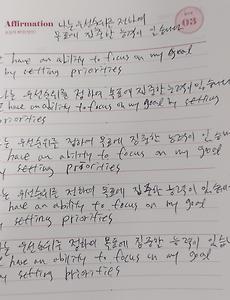 Affirmation
나는 우선순위를 정하여
목표에 집중할 능력이 있습니다
03
I have an ability to focus on my goal
by setting priorities
나는 우선순위를 정하여 목표에 집중할 능력이 있습니다
I have an ability to focus on my goal by setting
priorities
나는 우선순위를 정하여 목표에 집중할 능력이 있습니다
have an ability to focus on my goal
by setting priorities
나는 우선순위를 정하여 목표에 집중할 능력이 있습니다
have an ability to focus on my goal
setting priorities
는 우선순위를 정하여 목표에 집중할 능력이 있습니
have an ability to focus on my goal
by setting priorities